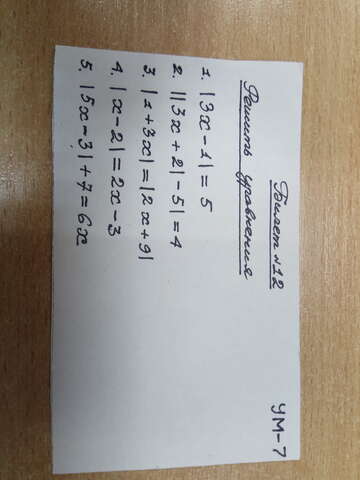 УМ-7
Билет №12
Решить уравнения
1. |3x-1|=5
2. ||3x+2|-5|=4
3. |1+3x|=|2x+9|
4. |x-2|=2x-3
5. |5x-3|+7=6x